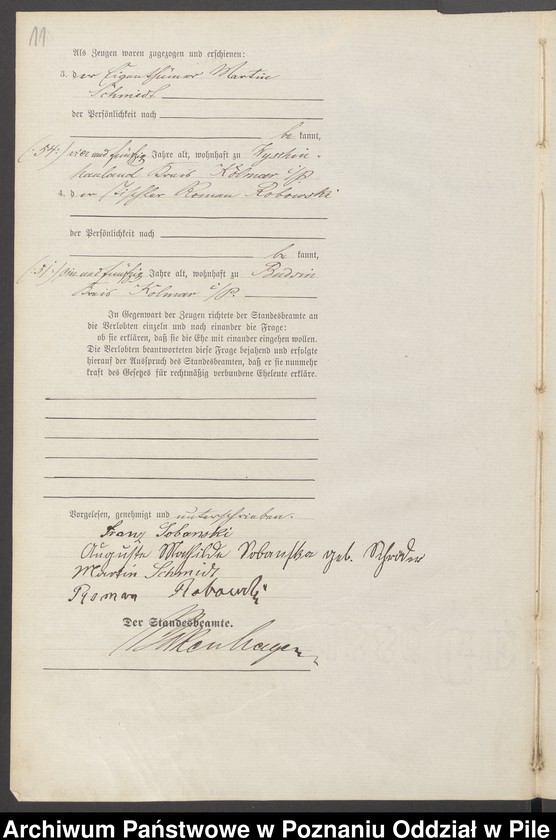 11
Als Zeugen waren zugezogen und erschienen:
3. der Eigenthümer Martin
Schmidt
der Persönlichkeit nach
be kannt,
(:54:) vier und fünfzig Jahre alt, wohnhaft zu
hauland Kreis Kolmar i/P.
4. der Tischler Roman Robowski
der Persönlichkeit nach
be kannt,
(:51:) ein und fünfzig Jahre alt, wohnhaft zu Budsin
Kreis Kolmar i/P.
In Gegenwart der Zeugen richtete der Standesbeamte an
die Verlobten einzeln und nach einander die Frage:
ob sie erklären, daß sie die Ehe mit einander eingehen wollen.
Die Verlobten beantworteten diese Frage bejahend und erfolgte
hierauf der Ausspruch des Standesbeamten, daß er sie nunmehr
kraft des Gesetzes für rechtmäßig verbundene Eheleute erkläre.
Vorgelesen, genehmigt und unterschrieben.
Franz Sobanski
Auguste Mathilde Sobanska geb. Schrader
Martin Schmidt
Roman Robowski
Der Standesbeamte.
Archiwum Państwowe w Poznaniu Oddział w Pile